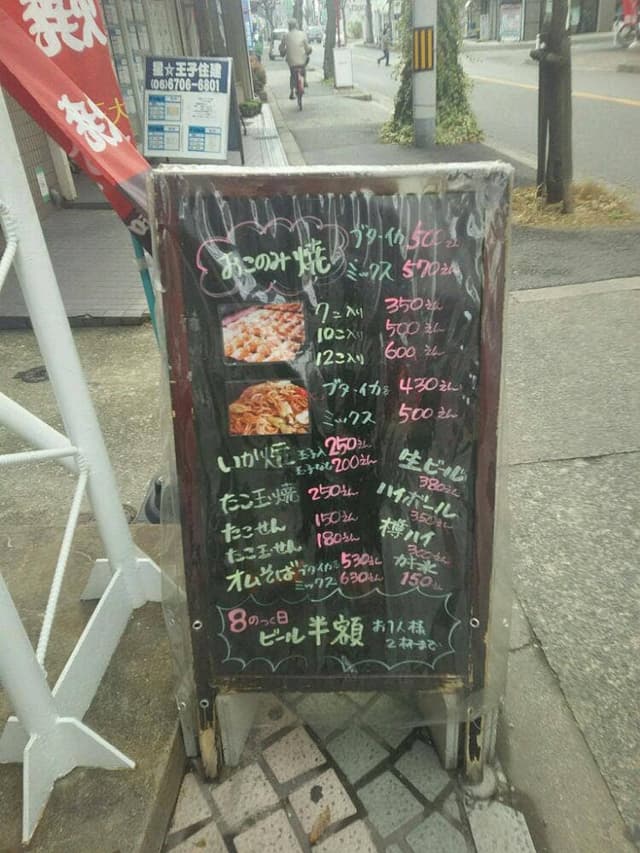 星☆王子住建
(06)6706-6801
おこのみ焼
ブタ・イカ 500えん
ミックス 570えん
7こ入り 350えん
10こ入り 500えん
12こ入り 600えん
ブタ・イカ 430えん
ミックス 500えん
いか焼 玉子入 250えん
玉子なし 200えん
たこ玉焼 250えん
たこせん 150えん
たこ玉せん 180えん
オムそば ブタイカ 530えん
ミックス 630えん
生ビール
380えん
ハイボール
350えん
樽ハイ
300えん
カキ氷
150えん
8のつく日
ビール半額 お1人様
2杯まで